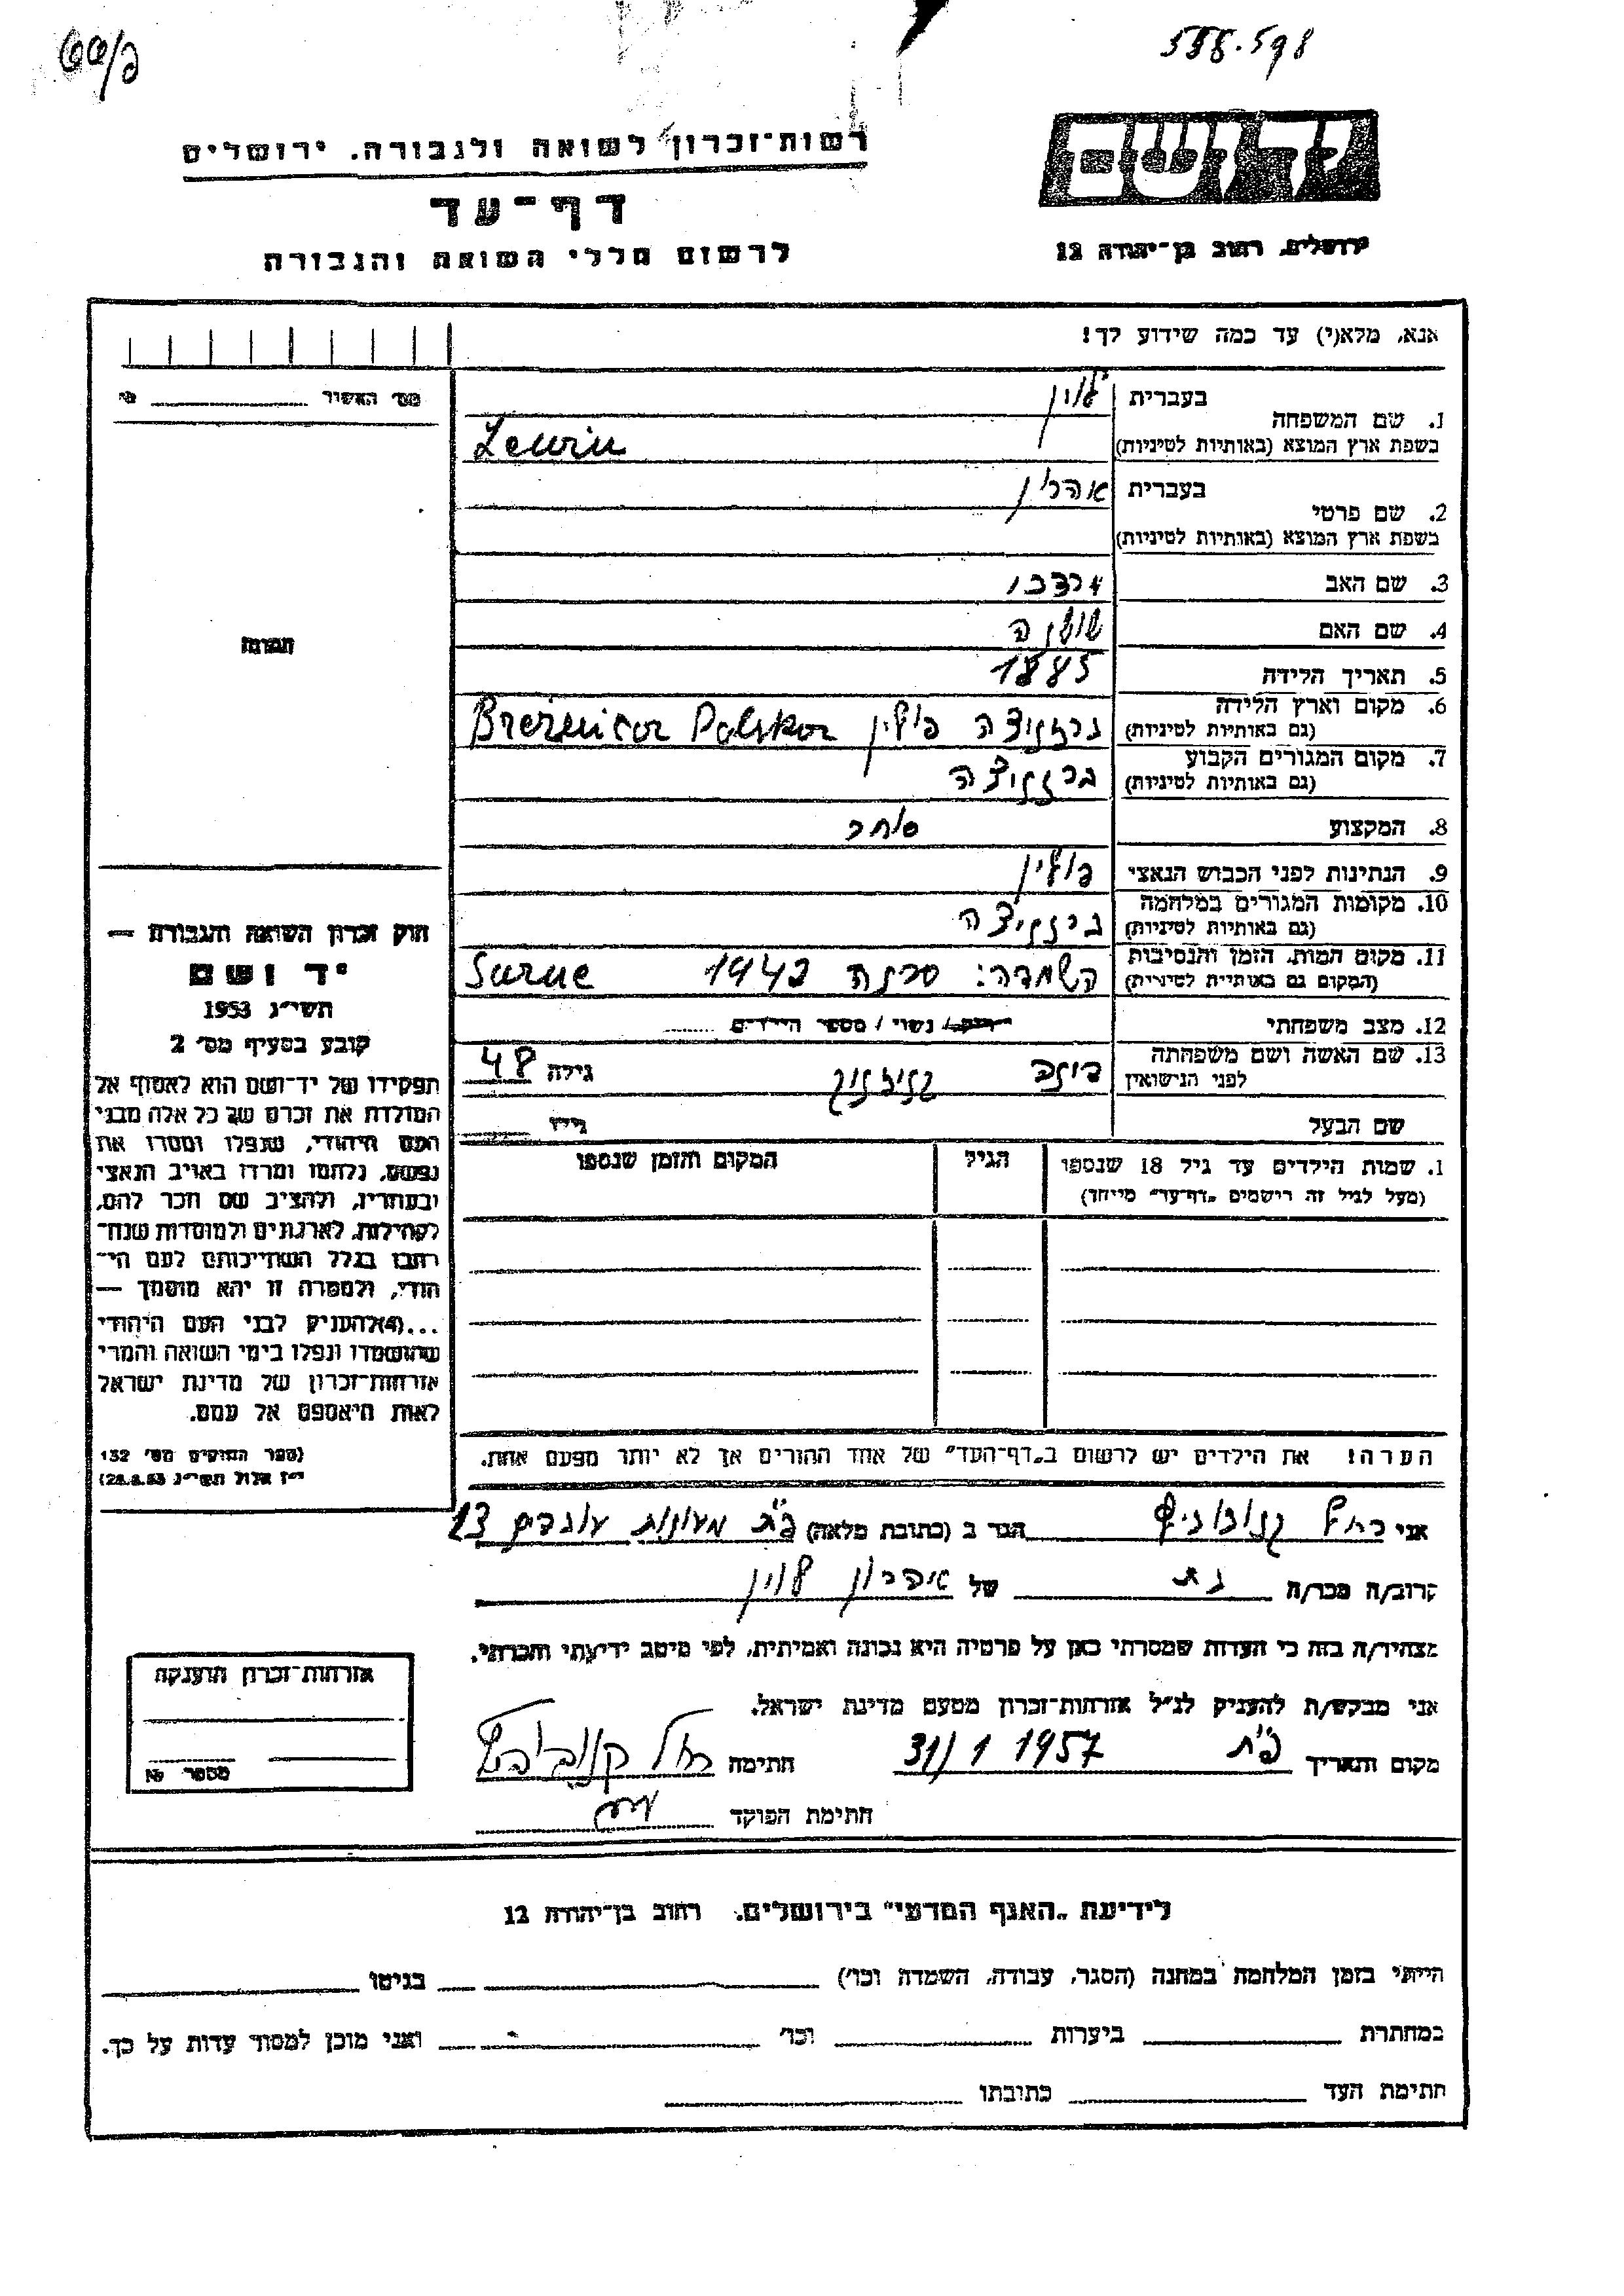 558.598
יד ושם
רשות־זכרון לשואה ולגבורה. ירושלים
ירושלים, רחוב בן־יהודה 12
דף־עד
לרשום חללי השואה והגבורה
אנא, מלא(י) עד כמה שידוע לך!
מס׳ האשור
1. שם המשפחה
בעברית לוין
בשפת ארץ המוצא (באותיות לטיניות) Lewin
2. שם פרטי
בעברית אהרון
בשפת ארץ המוצא (באותיות לטיניות)
3. שם האב מרדכי
4. שם האם
5. תאריך הלידה 1885
6. מקום וארץ הלידה (גם באותיות לטיניות) ברזניצה פולין Breżnica Polska
7. מקום המגורים הקבוע (גם באותיות לטיניות) ברזניצה
8. המקצוע סוחר
9. הנתינות לפני הכבוש הנאצי פולין
10. מקומות המגורים במלחמה (גם באותיות לטיניות) ברזניצה
11. מקום המות, הזמן והנסיבות (המקום גם באותיות לטיניות) השמדה: סרנה 1942 Sarne
12. מצב משפחתי רווק / נשוי / מספר הילדים
13. שם האשה ושם משפחתה לפני הנישואין גילה 48
שם הבעל גילו
1. שמות הילדים עד גיל 18 שנספו
(מעל לגיל זה רישמים „דף־עד" מייחד)
הגיל
המקום והזמן שנספו
הערה! את הילדים יש לרשום ב„דף־העד" של אחד ההורים אך לא יותר מפעם אחת.
התמונה
חוק זכרון השואה והגבורה —
יד ושם
תשי״ג 1953
קובע בסעיף מס׳ 2
תפקידו של יד־ושם הוא לאסוף אל
המולדת את זכרם של כל אלה מבני
העם היהודי, שנפלו ומסרו את
נפשם, נלחמו ומרדו באויב הנאצי
ובעוזריו, ולהציב שם וזכר להם,
לקהילות, לארגונים ולמוסדות שנח־
רבו בגלל השתייכותם לעם הי־
הודי, ולמטרה זו יהא מוסמך —
...(4)להעניק לבני העם היהודי
שהושמדו ונפלו בימי השואה והמרי
אזרחות־זכרון של מדינת ישראל
לאות היאספם אל עמם.
(ספר החוקים מס׳ 132
י״ז אלול תשי״ג 28.8.53)
אני רחל הגר ב (כתובת מלאה) פ״ת מעונות עובדים 13
קרוב/ה מכר/ה בת של אהרון לוין
מצהיר/ה בזה כי העדות שמסרתי כאן על פרטיה היא נכונה ואמיתית, לפי מיטב ידיעתי והכרתי.
אני מבקש/ת להעניק לנ״ל אזרחות־זכרון מטעם מדינת ישראל.
מקום ותאריך פ״ת 31/1 1957 חתימה רחל
חתימת הפוקד
אזרחות־זכרון הוענקה
מספר №
לידיעת „האגף המדעי" בירושלים. רחוב בן־יהודה 12
הייתי בזמן המלחמה במחנה (הסגר, עבודה, השמדה וכו׳) בגיטו
במחתרת ביערות וכו׳ ואני מוכן למסור עדות על כך.
חתימת העד כתובתו